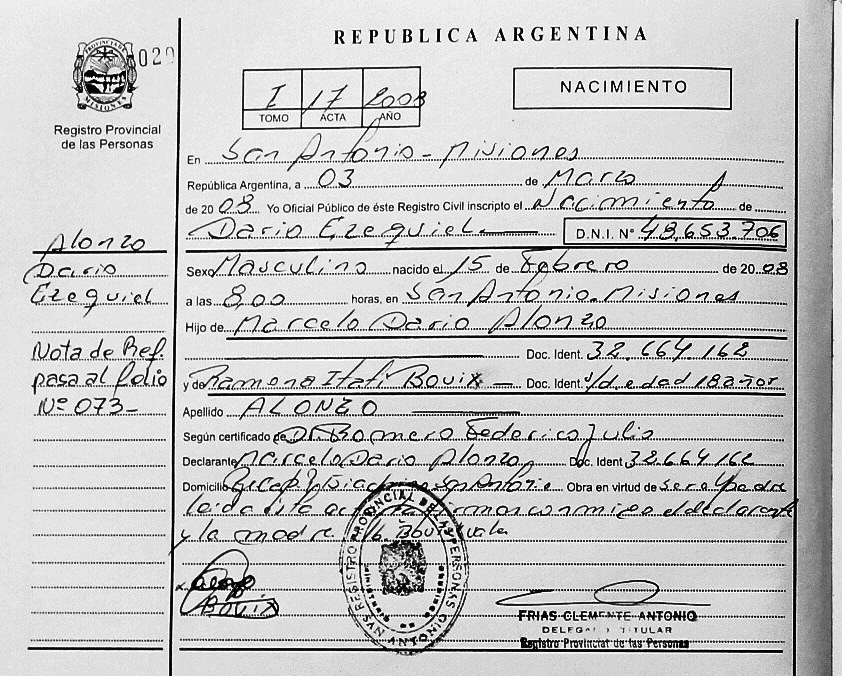 REPUBLICA ARGENTINA
PROVINCIA DE
MISIONES
029
Registro Provincial
de las Personas
I 17 2008
TOMO ACTA AÑO
NACIMIENTO
En San Antonio - Misiones
República Argentina, a 03 de Marzo
de 2008 Yo Oficial Público de éste Registro Civil inscripto el Nacimiento de
Dario Ezequiel D.N.I. Nº 48.653.706
Sexo Masculino nacido el 15 de Febrero de 2008
a las 8,00 horas, en San Antonio. Misiones
Hijo de Marcelo Dario Alonzo
Doc. Ident. 32.664.162
y de Ramona Itatí Bovix - Doc. Ident. s/d. edad 18 años
Apellido ALONZO
Según certificado de Dr. Romero Federico Julio
Declarante Marcelo Dario Alonzo Doc. Ident 32.664.162
Domicilio San Antonio Obra en virtud de ser el padre
leida esta conmigo el declarante
y la madre Bovix
Alonzo
Dario
Ezequiel
Nota de Ref.
pasa al folio
Nº 073-
Bovix
REGISTRO PROVINCIAL DE LAS PERSONAS
MINISTERIO DE GOBIERNO
SAN ANTONIO
FRIAS CLEMENTE ANTONIO
DELEGADO TITULAR
Registro Provincial de las Personas